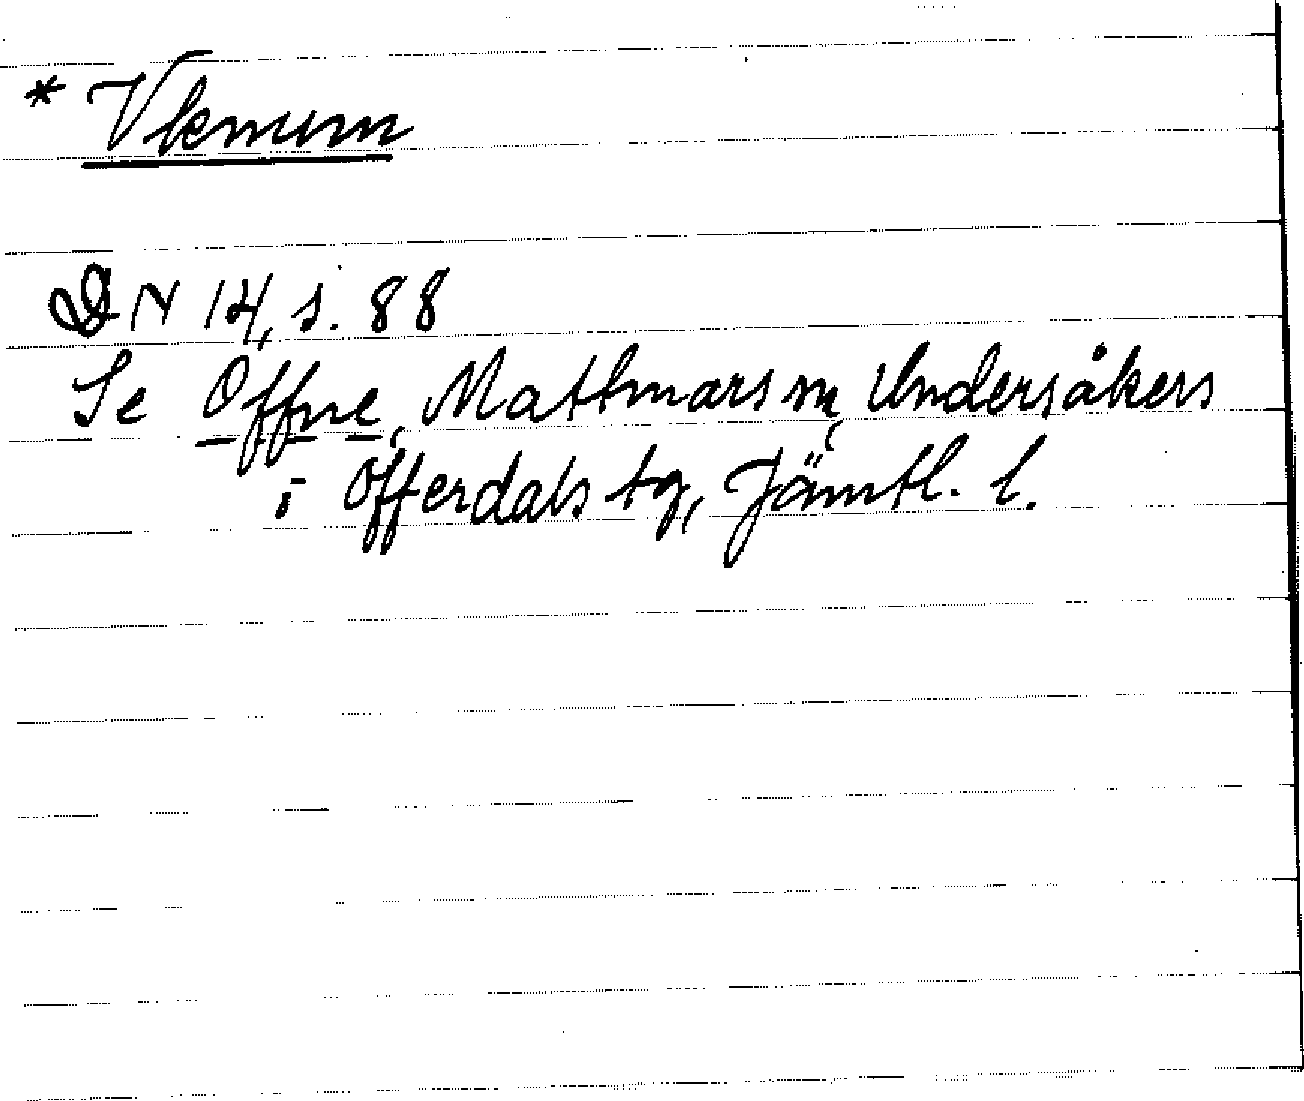 * Vknum
DN 14, s. 88
Se Offne, Mattmars sn, Undersåkers
i Offerdals tg, Jämtl. l.